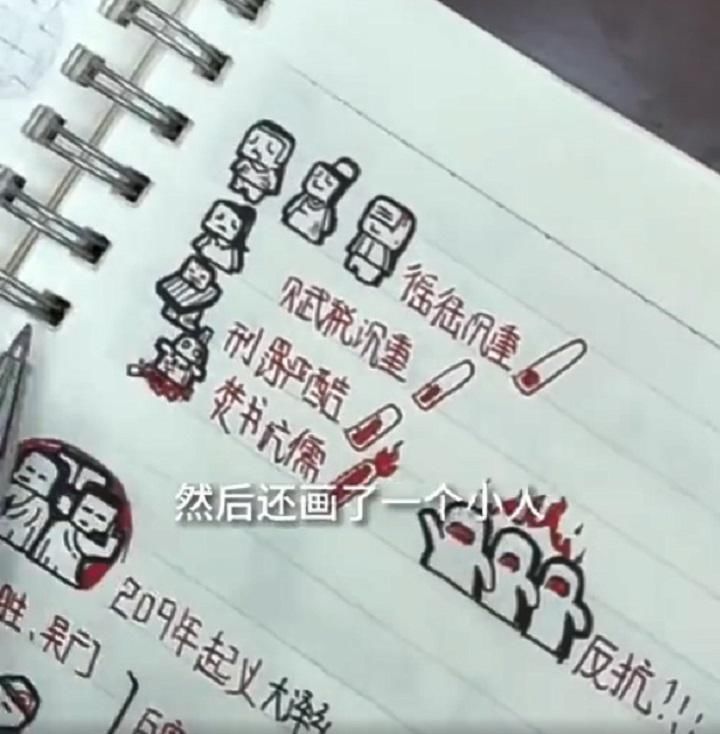 徭役沉重
赋税沉重
刑罚严酷
焚书坑儒
然后还画了一个小人
反抗!!!
209年起义大泽
胜、吴广